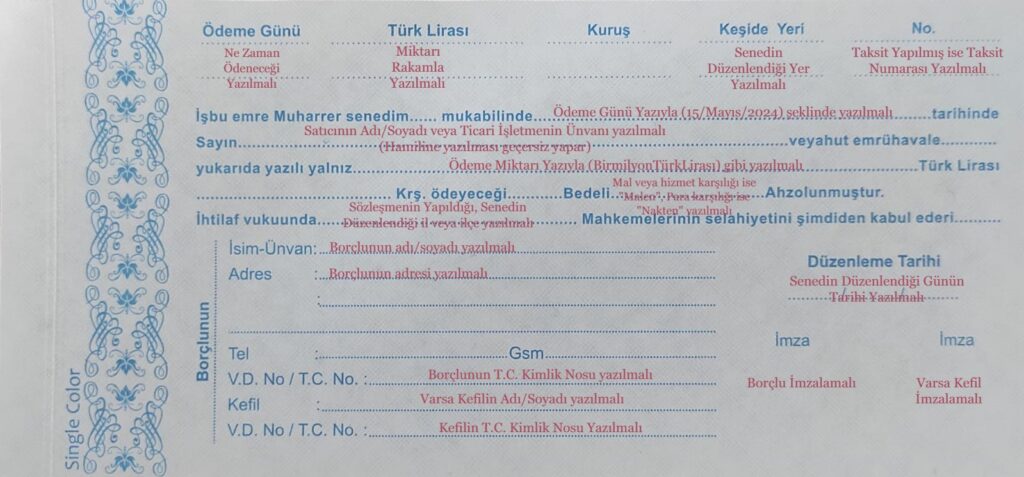 Ödeme Günü Türk Lirası Kuruş Keşide Yeri No.
Ne Zaman Miktarı Senedin Taksit Yapılmış ise Taksit
Ödeneceği Rakamla Düzenlendiği Yer Numarası Yazılmalı
Yazılmalı Yazılmalı Yazılmalı
İşbu emre Muharrer senedim...... mukabilinde Ödeme Günü Yazıyla (15/Mayıs/2024) şeklinde yazılmalı tarihinde
Satıcının Adı/Soyadı veya Ticari İşletmenin Ünvanı yazılmalı
Sayın (Hamiline yazılması geçersiz yapar) veyahut emrühavale
yukarıda yazılı yalnız Ödeme Miktarı Yazıyla (BirmilyonTürkLirası) gibi yazılmalı Türk Lirası
Mal veya hizmet karşılığı ise
Krş. ödeyeceği Bedeli "Malen", Para karşılığı ise Ahzolunmuştur.
"Nakten" yazılmalı
Sözleşmenin Yapıldığı, Senedin
İhtilaf vukuunda Düzenlendiği il veya ilçe yazılmalı Mahkemelerinin selahiyetini şimdiden kabul ederi
Borçlunun
İsim-Ünvan: Borçlunun adı/soyadı yazılmalı
Adres : Borçlunun adresi yazılmalı
:
Tel : Gsm
V.D. No / T.C. No. : Borçlunun T.C. Kimlik Nosu yazılmalı
Kefil : Varsa Kefilin Adı/Soyadı yazılmalı
V.D. No / T.C. No. : Kefilin T.C. Kimlik Nosu Yazılmalı
Düzenleme Tarihi
Senedin Düzenlendiği Günün
Tarihi Yazılmalı
İmza İmza
Borçlu İmzalamalı Varsa Kefil
İmzalamalı
Single Color